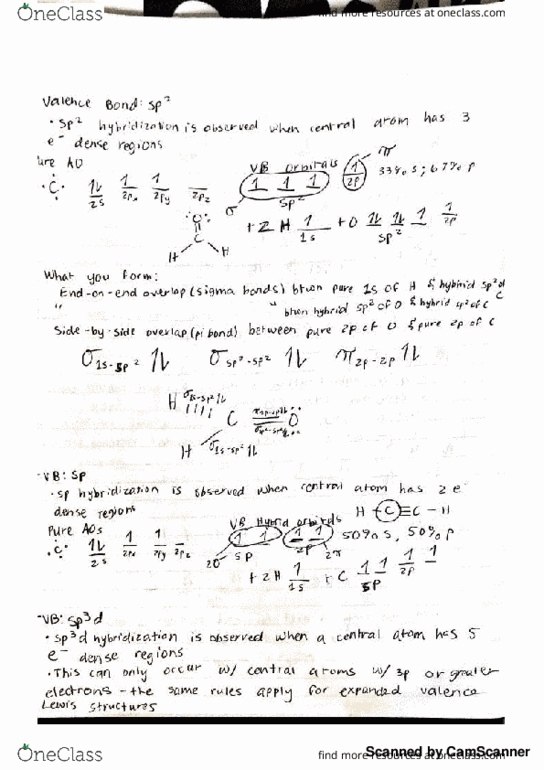 OneClass
find more resources at oneclass.com
Valence Bond: sp²
• sp² hybridization is observed when central atom has 3
e⁻ dense regions
ure AO
VB orbitals
π
33% s; 67% p
C
2s 2px 2py 2pz
sp²
2p
σ
+ 2 H 1s + O sp² 2p
O
C
H H
What you form:
End-on-end overlap (sigma bonds) btwn pure 1s of H & hybrid sp² of C
" " btwn hybrid sp² of O & hybrid sp² of C
Side-by-side overlap (pi bond) between pure 2p of O & pure 2p of C
σ 1s-sp² σ sp²-sp² π 2p-2p
H σ1s-sp²
C π2p-2p O
σsp²-sp²
H σ1s-sp²
-VB: sp
• sp hybridization is observed when central atom has 2 e⁻
dense regions
H - C ≡ C - H
Pure AOs
VB Hybrid orbitals
50% s, 50% p
C
2s 2px 2py 2pz
sp 2p
2σ 2π
+ 2 H 1s + C sp 2p
-VB: sp³d
• sp³d hybridization is observed when a central atom has 5
e⁻ dense regions
• This can only occur w/ central atoms w/ 3p or greater
electrons - the same rules apply for expanded valence
Lewis structures
Scanned by CamScanner
OneClass
find more resources at oneclass.com